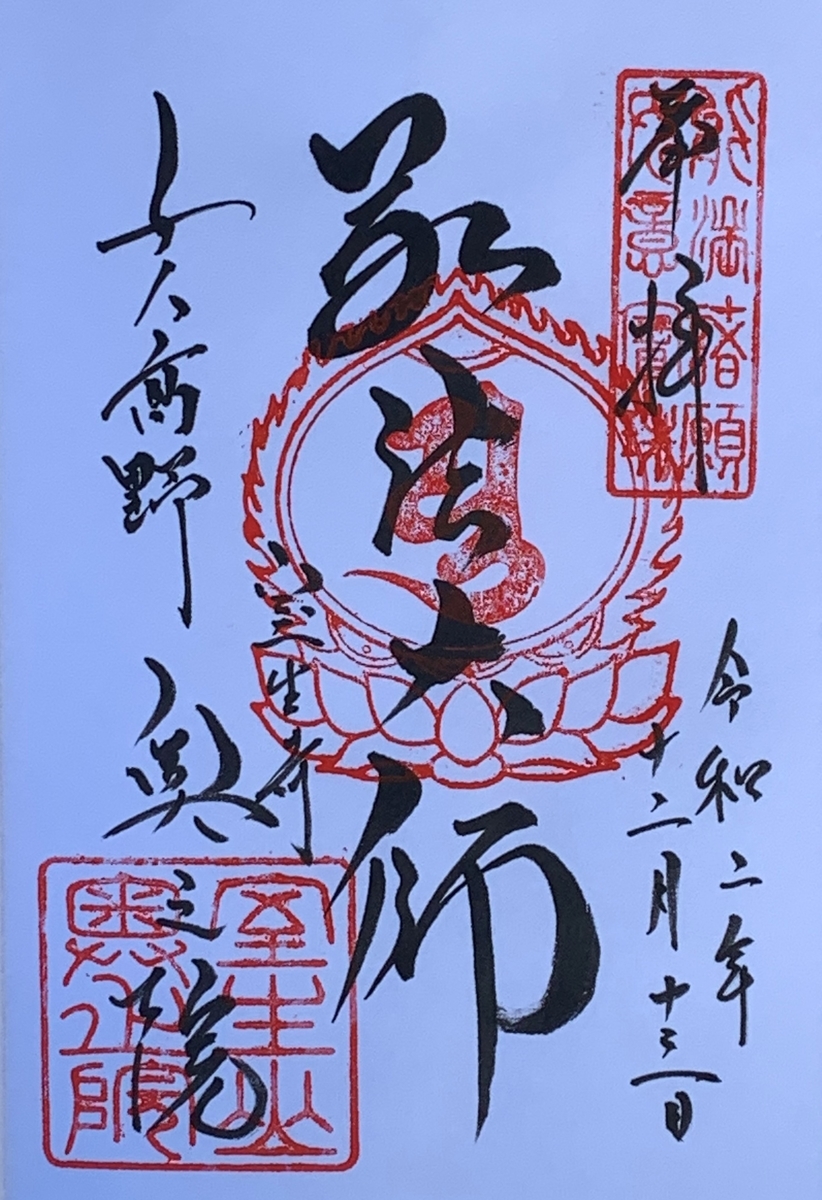 能満諸願
如意寶珠
奉拝
令和二年
十二月十三日
弘法大師
室生寺
女人高野
奥之院
室生山
奥之院